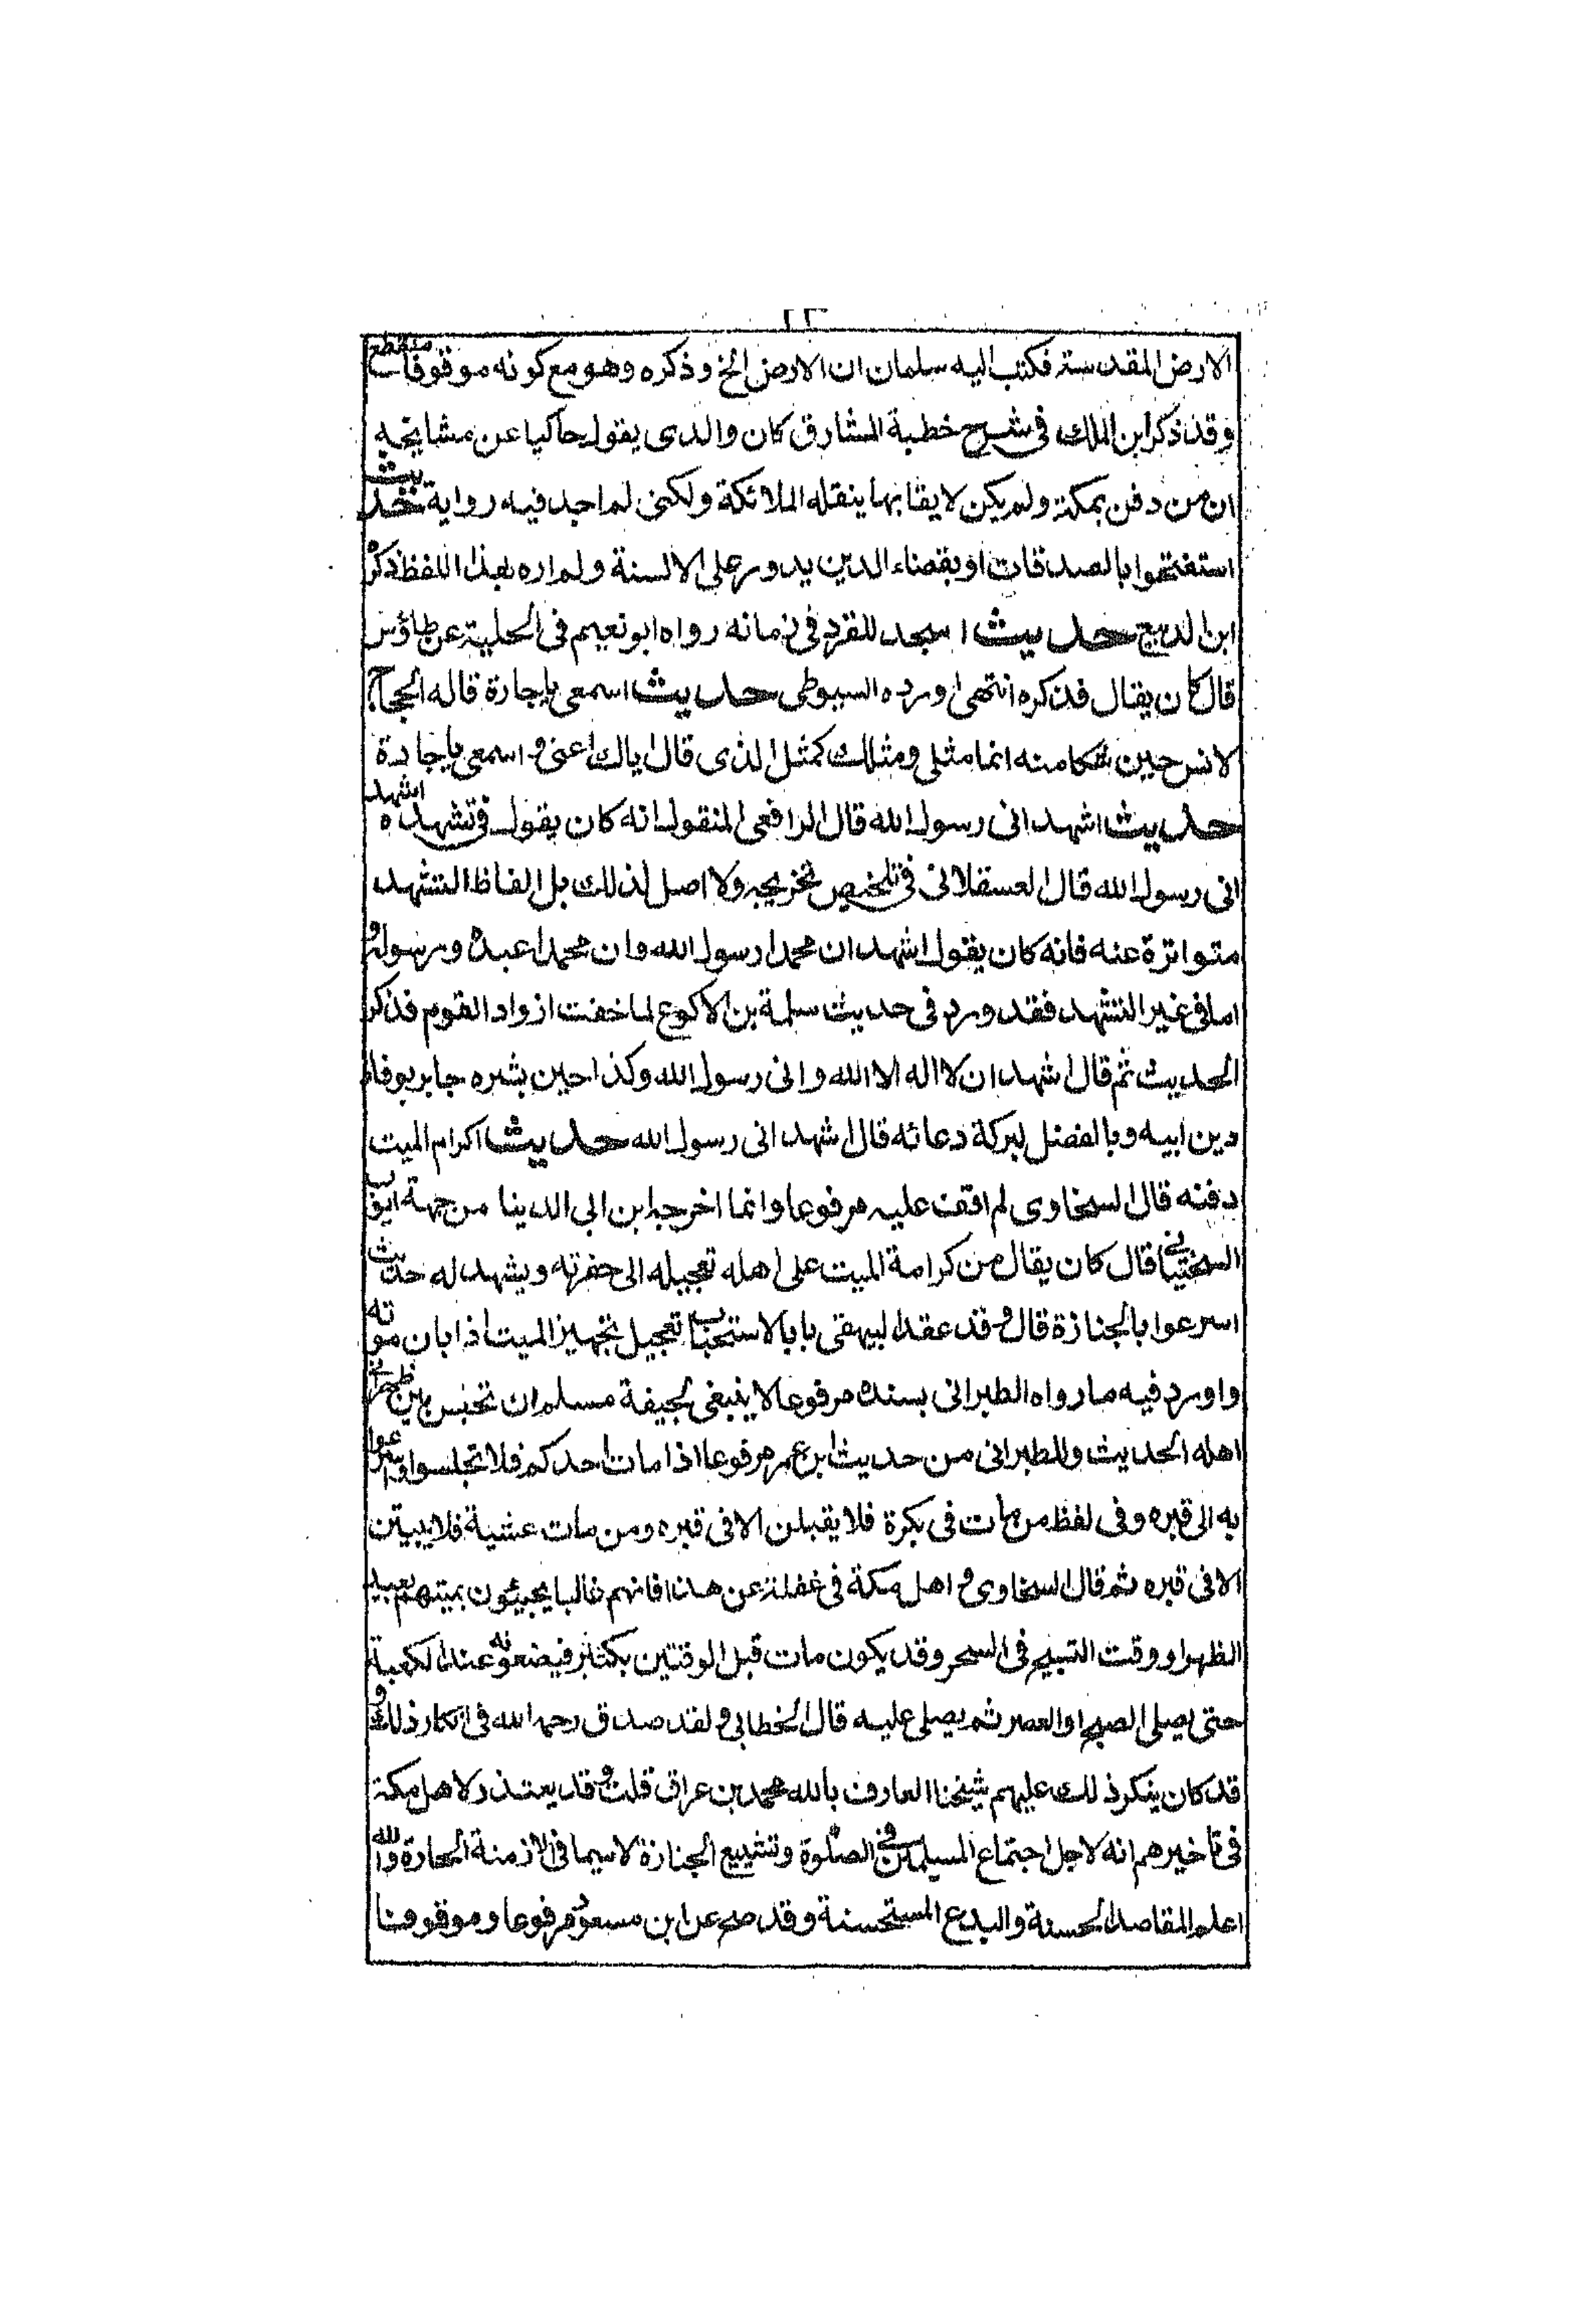 ٢٣
الارض المقدسة فكتب اليه سلمان ان الارض الخ وذكره وهو مع كونه موقوفا منقطع
وقد ذكر ابن الملك فى شرح خطبة المشارق كان والدى يقول حاكيا عن مشايخه
ان من دفن بمكة ولم يكن لايقا بها ينقله الملائكة ولكنى لم اجد فيه رواية حديث
استفتحوا بالصدقات او بقضاء الدين يدور على الالسنة ولم اره بهذا اللفظ ذكره
ابن الديبع حديث اسجد للقرد فى زمانه رواه ابو نعيم فى الحلية عن طاؤس
قال كان يقال فذكره انتهى اورده السيوطى حديث اسمعى ياجارة قاله الحجاج
لانس حين شكا منه انما مثلى ومثلك كمثل الذى قال اياك اعنى و اسمعى ياجارة
حديث اشهد انى رسول الله قال الرافعى المنقول انه كان يقول فى تشهده اشهد
انى رسول الله قال العسقلانى فى تلخيص تخريجه ولا اصل لذلك بل الفاظ التشهد
متواترة عنه فانه كان يقول اشهد ان محمدا رسول الله وان محمدا عبده ورسوله و
اما فى غير التشهد فقد ورد فى حديث سلمة بن الاكوع لما خفت ازواد القوم فذكر
الحديث ثم قال اشهد ان لا اله الا الله وانى رسول الله وكذا حين بشره جابر بوفاء
دين ابيه وبالفضل لبركة دعائه قال اشهد انى رسول الله حديث اكرام الميت
دفنه قال السخاوى لم اقف عليه مرفوعا وانما اخرجه ابن ابى الدينا من جهة ايوب
السختيانى قال كان يقال من كرامة الميت على اهله تعجيله الى حفرته ويشهد له حديث
اسرعوا بالجنازة قال و قد عقد البيهقى بابا لاستحباب تعجيل تجهيز الميت اذا بان موته
واورد فيه ما رواه الطبرانى بسنده مرفوعا لا ينبغى لجيفة مسلم ان تحبس بين ظهرانى
اهله الحديث وللطبرانى من حديث ابن عمر مرفوعا اذا مات احدكم فلا تجلسوا واسرعوا
به الى قبره وفى لفظ من مات فى بكرة فلا يقبلن الا فى قبره ومن مات عشية فلا يبيتن
الا فى قبره ثم قال السخاوى و اهل مكة فى غفلة عن هذا فانهم غالبا يجيئون بميتهم بعيد
الظهر او وقت التسبيح فى السحر وقد يكون مات قبل الوقتين بكثير فيضعونه عند الكعبة
حتى يصلى الصبح او العصر ثم يصلى عليه قال الخطابى و لقد صدق رحمه الله فى انكار ذلك و
قد كان ينكر ذلك عليهم شيخنا العارف بالله محمد بن عراق قلت و قد يعتذر لاهل مكة
فى تاخيرهم انه لاجل اجتماع المسلمين فى الصلوة وتشييع الجنازة لاسيما فى الازمنة الحارة والله
اعلم المقاصد الحسنة والبدع المستحسنة وقد صح عن ابن مسعود مرفوعا وموقوفا